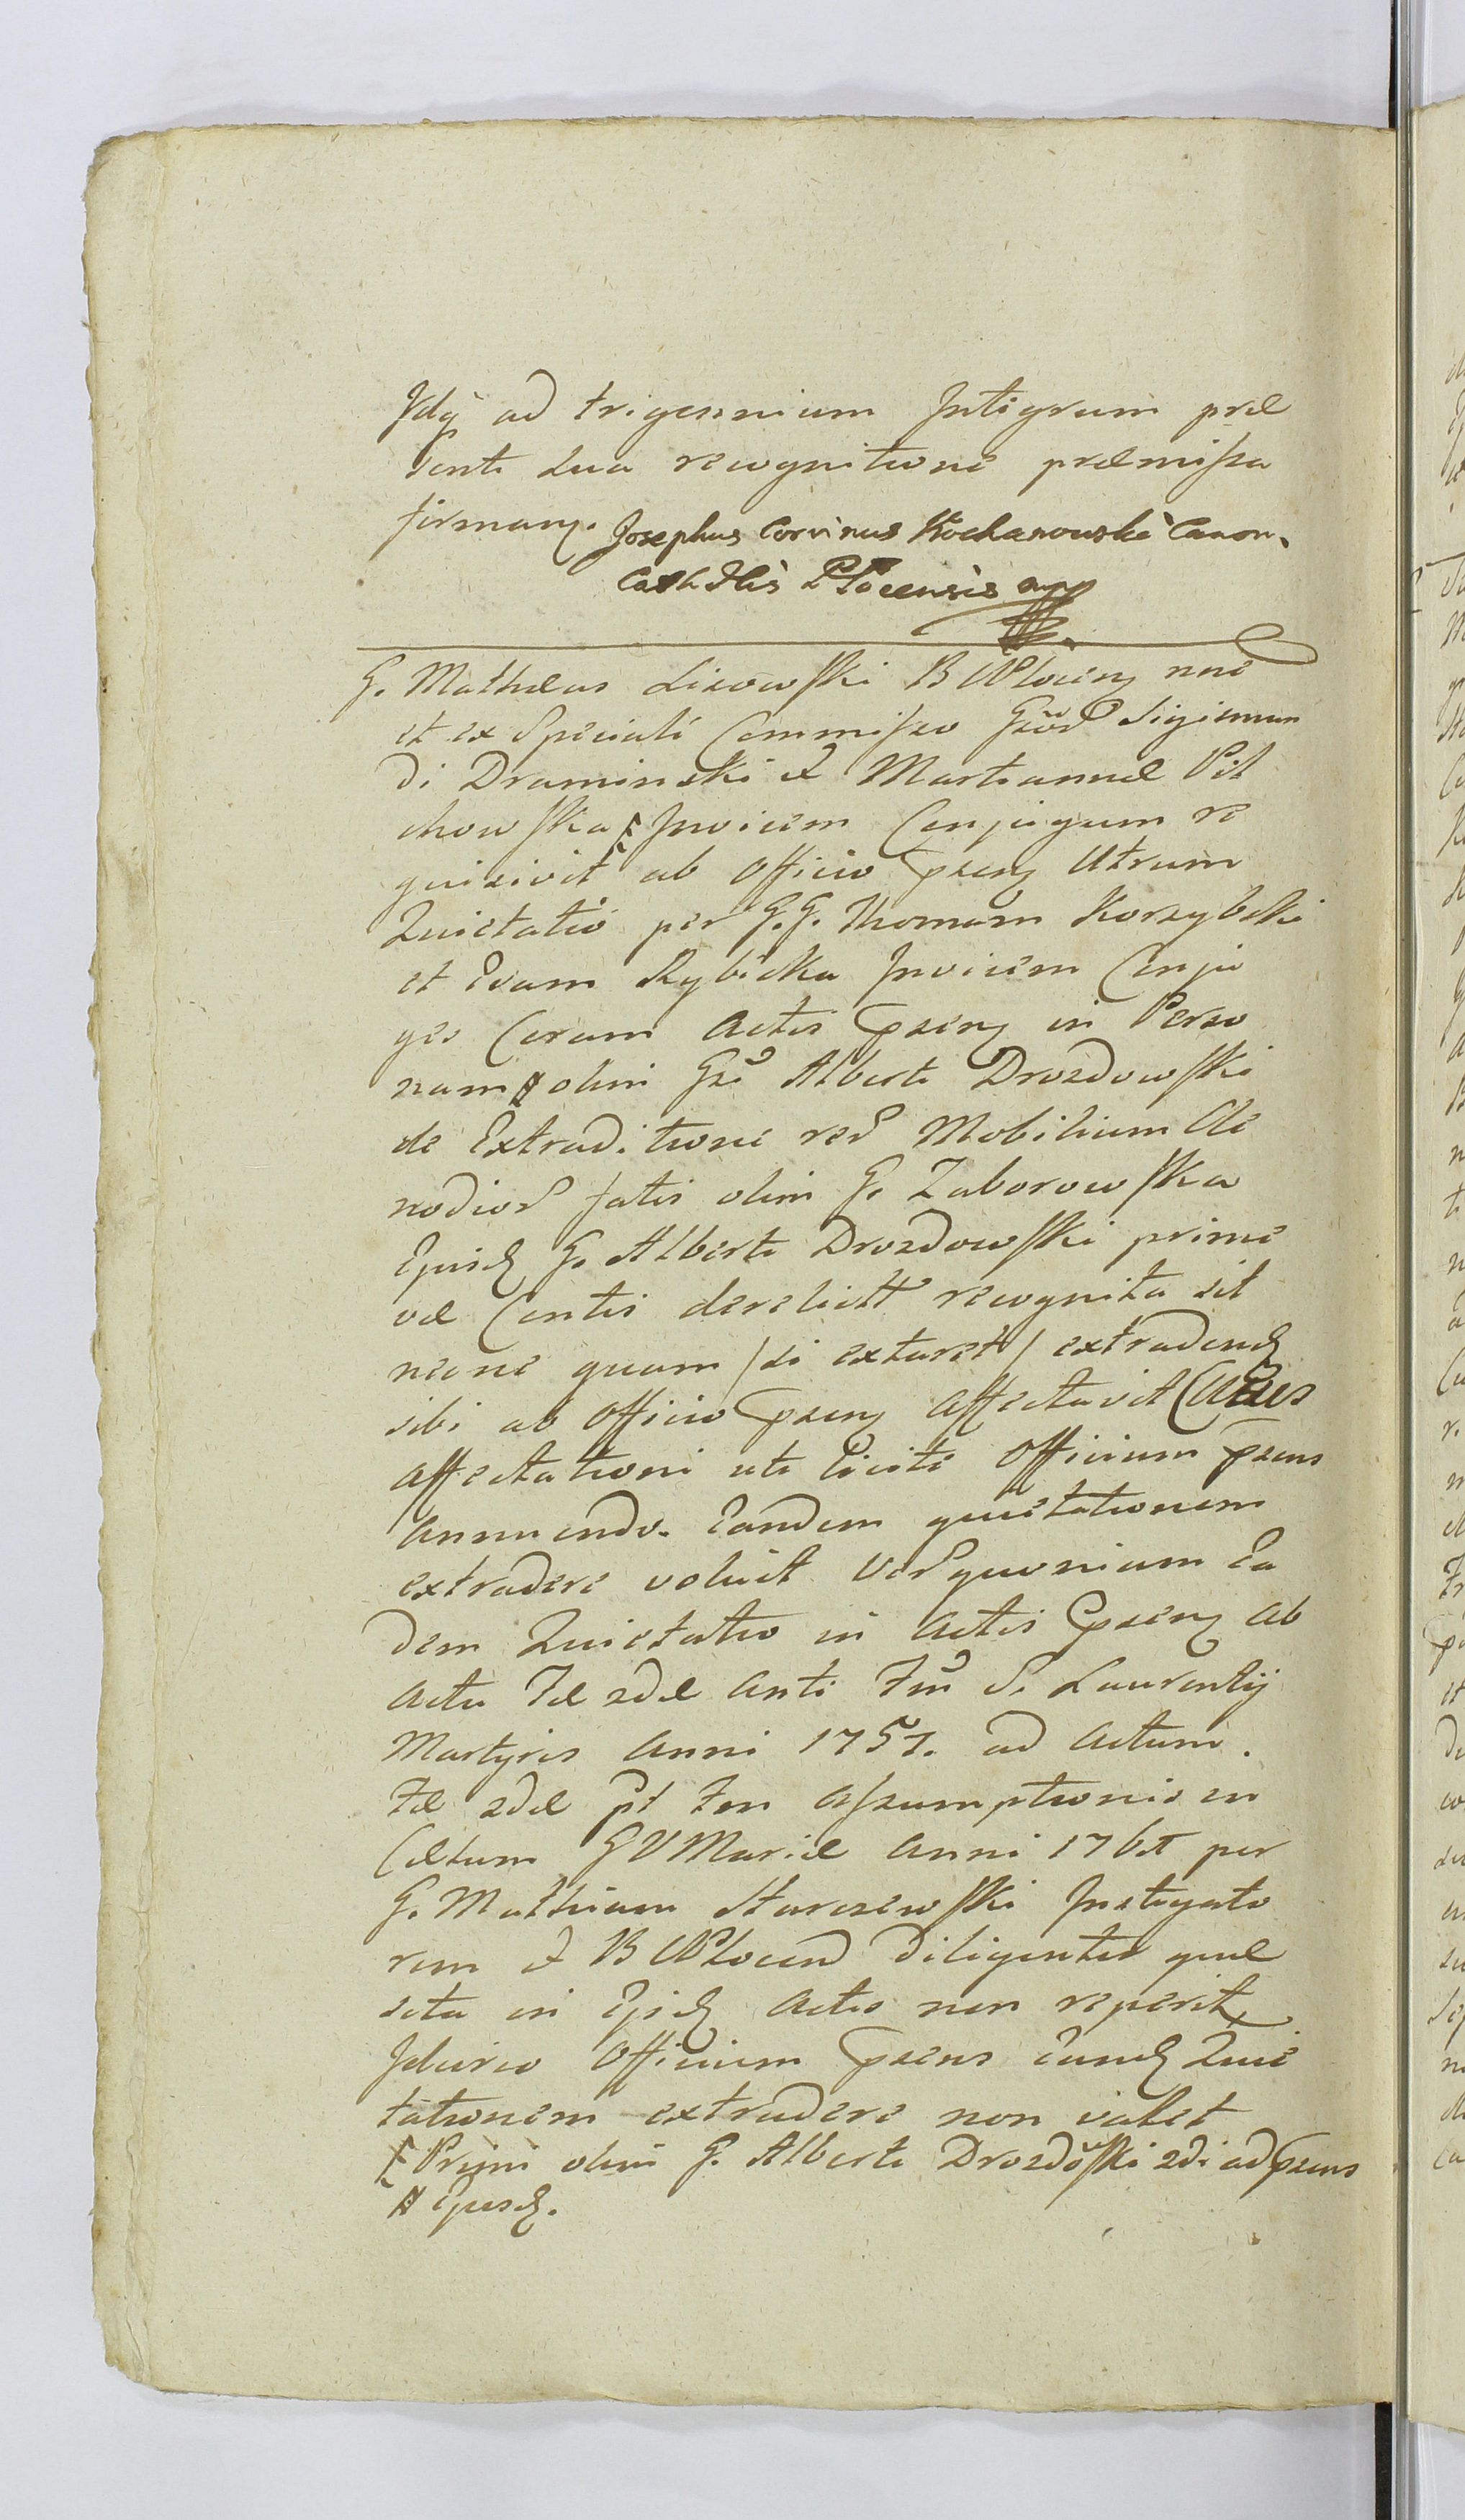 Idq ad trigennium Integrum præ
senti sua recognitione præmissa
firmang. Josephus Corvinus Kochanowski Canon.
Cathdlis Plocensis mpp
G. Mathæus Lisowski B Plocen noe
et ex Speciali Commisso Gsor Sigismun
di Draminski & Martiannæ Pil
chowska Invicem Conjugum re
quisivit ab Officio psens Utrum
Quietatio per G.G. Thomam Korzybski
et Evam Rybicka Invicem Conju
ges Coram Actis psens in Perso
nam olim Gsi Alberti Drozdowski
de Extraditione rer Mobilium Cle
nodior fatis olim G. Zaborowska
Ejusd G. Alberti Drozdowski prime
væ Contis derelict recognita sit
necne quam /si extaret/ extradend
sibi ab Officio psens Affectavit Cujus
Affectationi uti licite Officium psens
Annuendo. Eandem quietationem
extradere voluit Ver quoniam Ea
dem Quietatio in Actis psens ab
Actu Fæ 2dæ Anti Fm S. Laurentij
Martyris Anni 1757. ad Actum.
Fæ 2dæ pt Fm Assumptionis in
Cælum G V Mariæ Anni 1761 per
G. Mathiam Starczewski Instigato
rem & B Plocen diligenter quæ
sita in Ejsd Actis non reperit
Idcirco Officium psens Eand Quie
tationem extradere non valet
Primi olim G. Alberti Drozdoski 2di ad psens
Ejusd.